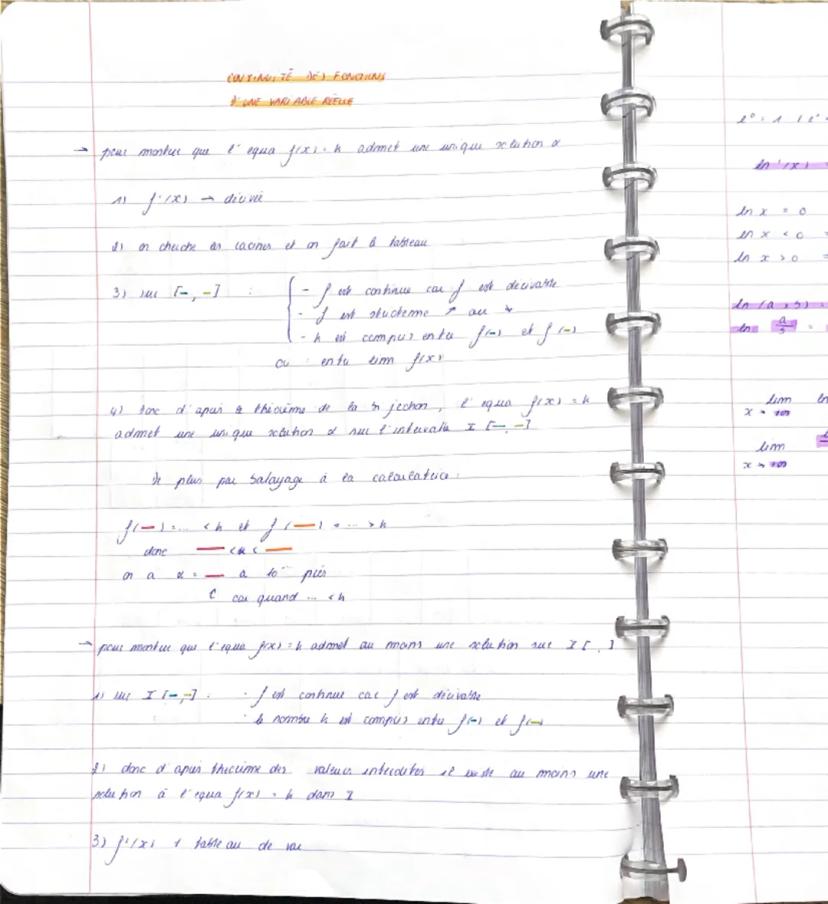 CONTINUITÉ DES FONCTIONS
D'UNE VARIABLE RÉELLE
→ pour montrer que l'equa f(x) = k admet une unique solution α
1) f'(x) → dérivée
2) on cherche les racines et on fait le tableau
3) sur [–, –] :
- f est continue car f est dérivable
- f est strictement ↗ ou ↘
- k est compris entre f(–) et f(–)
ou : entre lim f(x)
4) donc d'après le théorème de la bijection, l'equa f(x) = k
admet une unique solution α sur l'intervalle I [–, –]
De plus par balayage à la calculatrice :
f(—) = ... < k et f(—) = ... > k
donc — < α < —
on a α = — à 10⁻ près
car quand ... < k
→ pour montrer que l'equa f(x) = k admet au moins une solution sur I [ , ]
1) sur I [–, –] : · f est continue car f est dérivable
· le nombre k est compris entre f(–) et f(–)
2) donc d'après théorème des valeurs interdites il existe au moins une
solution à l'equa f(x) = k dans I
3) f'(x) + tableau de var
ln'(x) =
ln x = 0
ln x < 0
ln x > 0
lim
lim